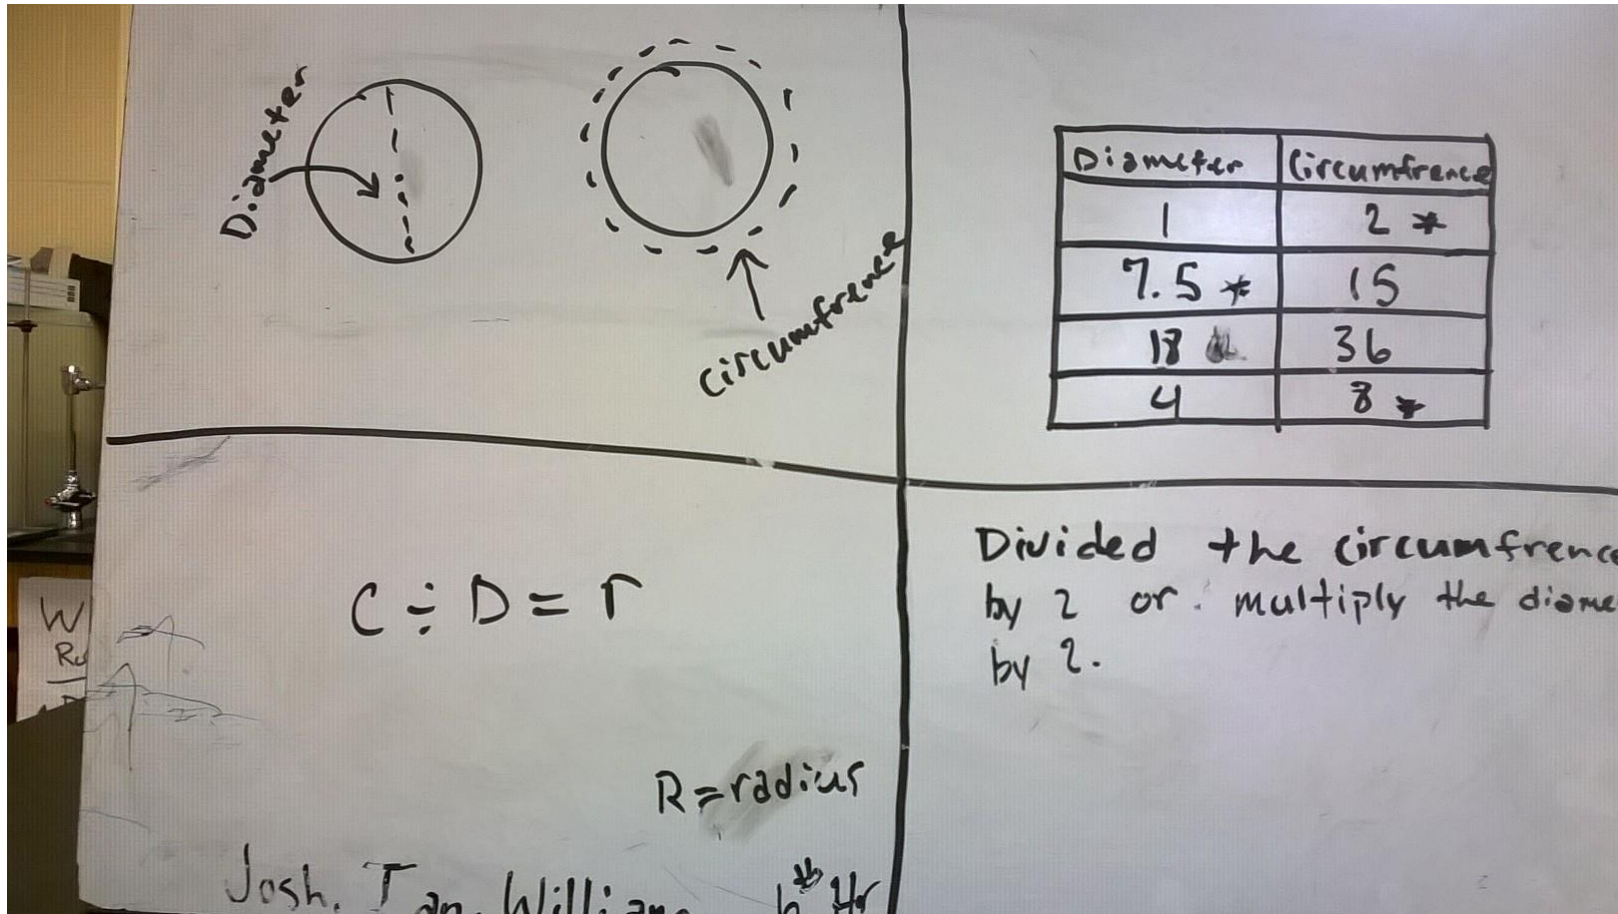 Diameter
Circumfrence
Diameter Circumfrence
1 2 *
7.5 * 15
18 36
4 8 *
C ÷ D = r
R = radius
Josh,
6th Hr
Divided the circumfrence
by 2 or multiply the diame
by 2.
W